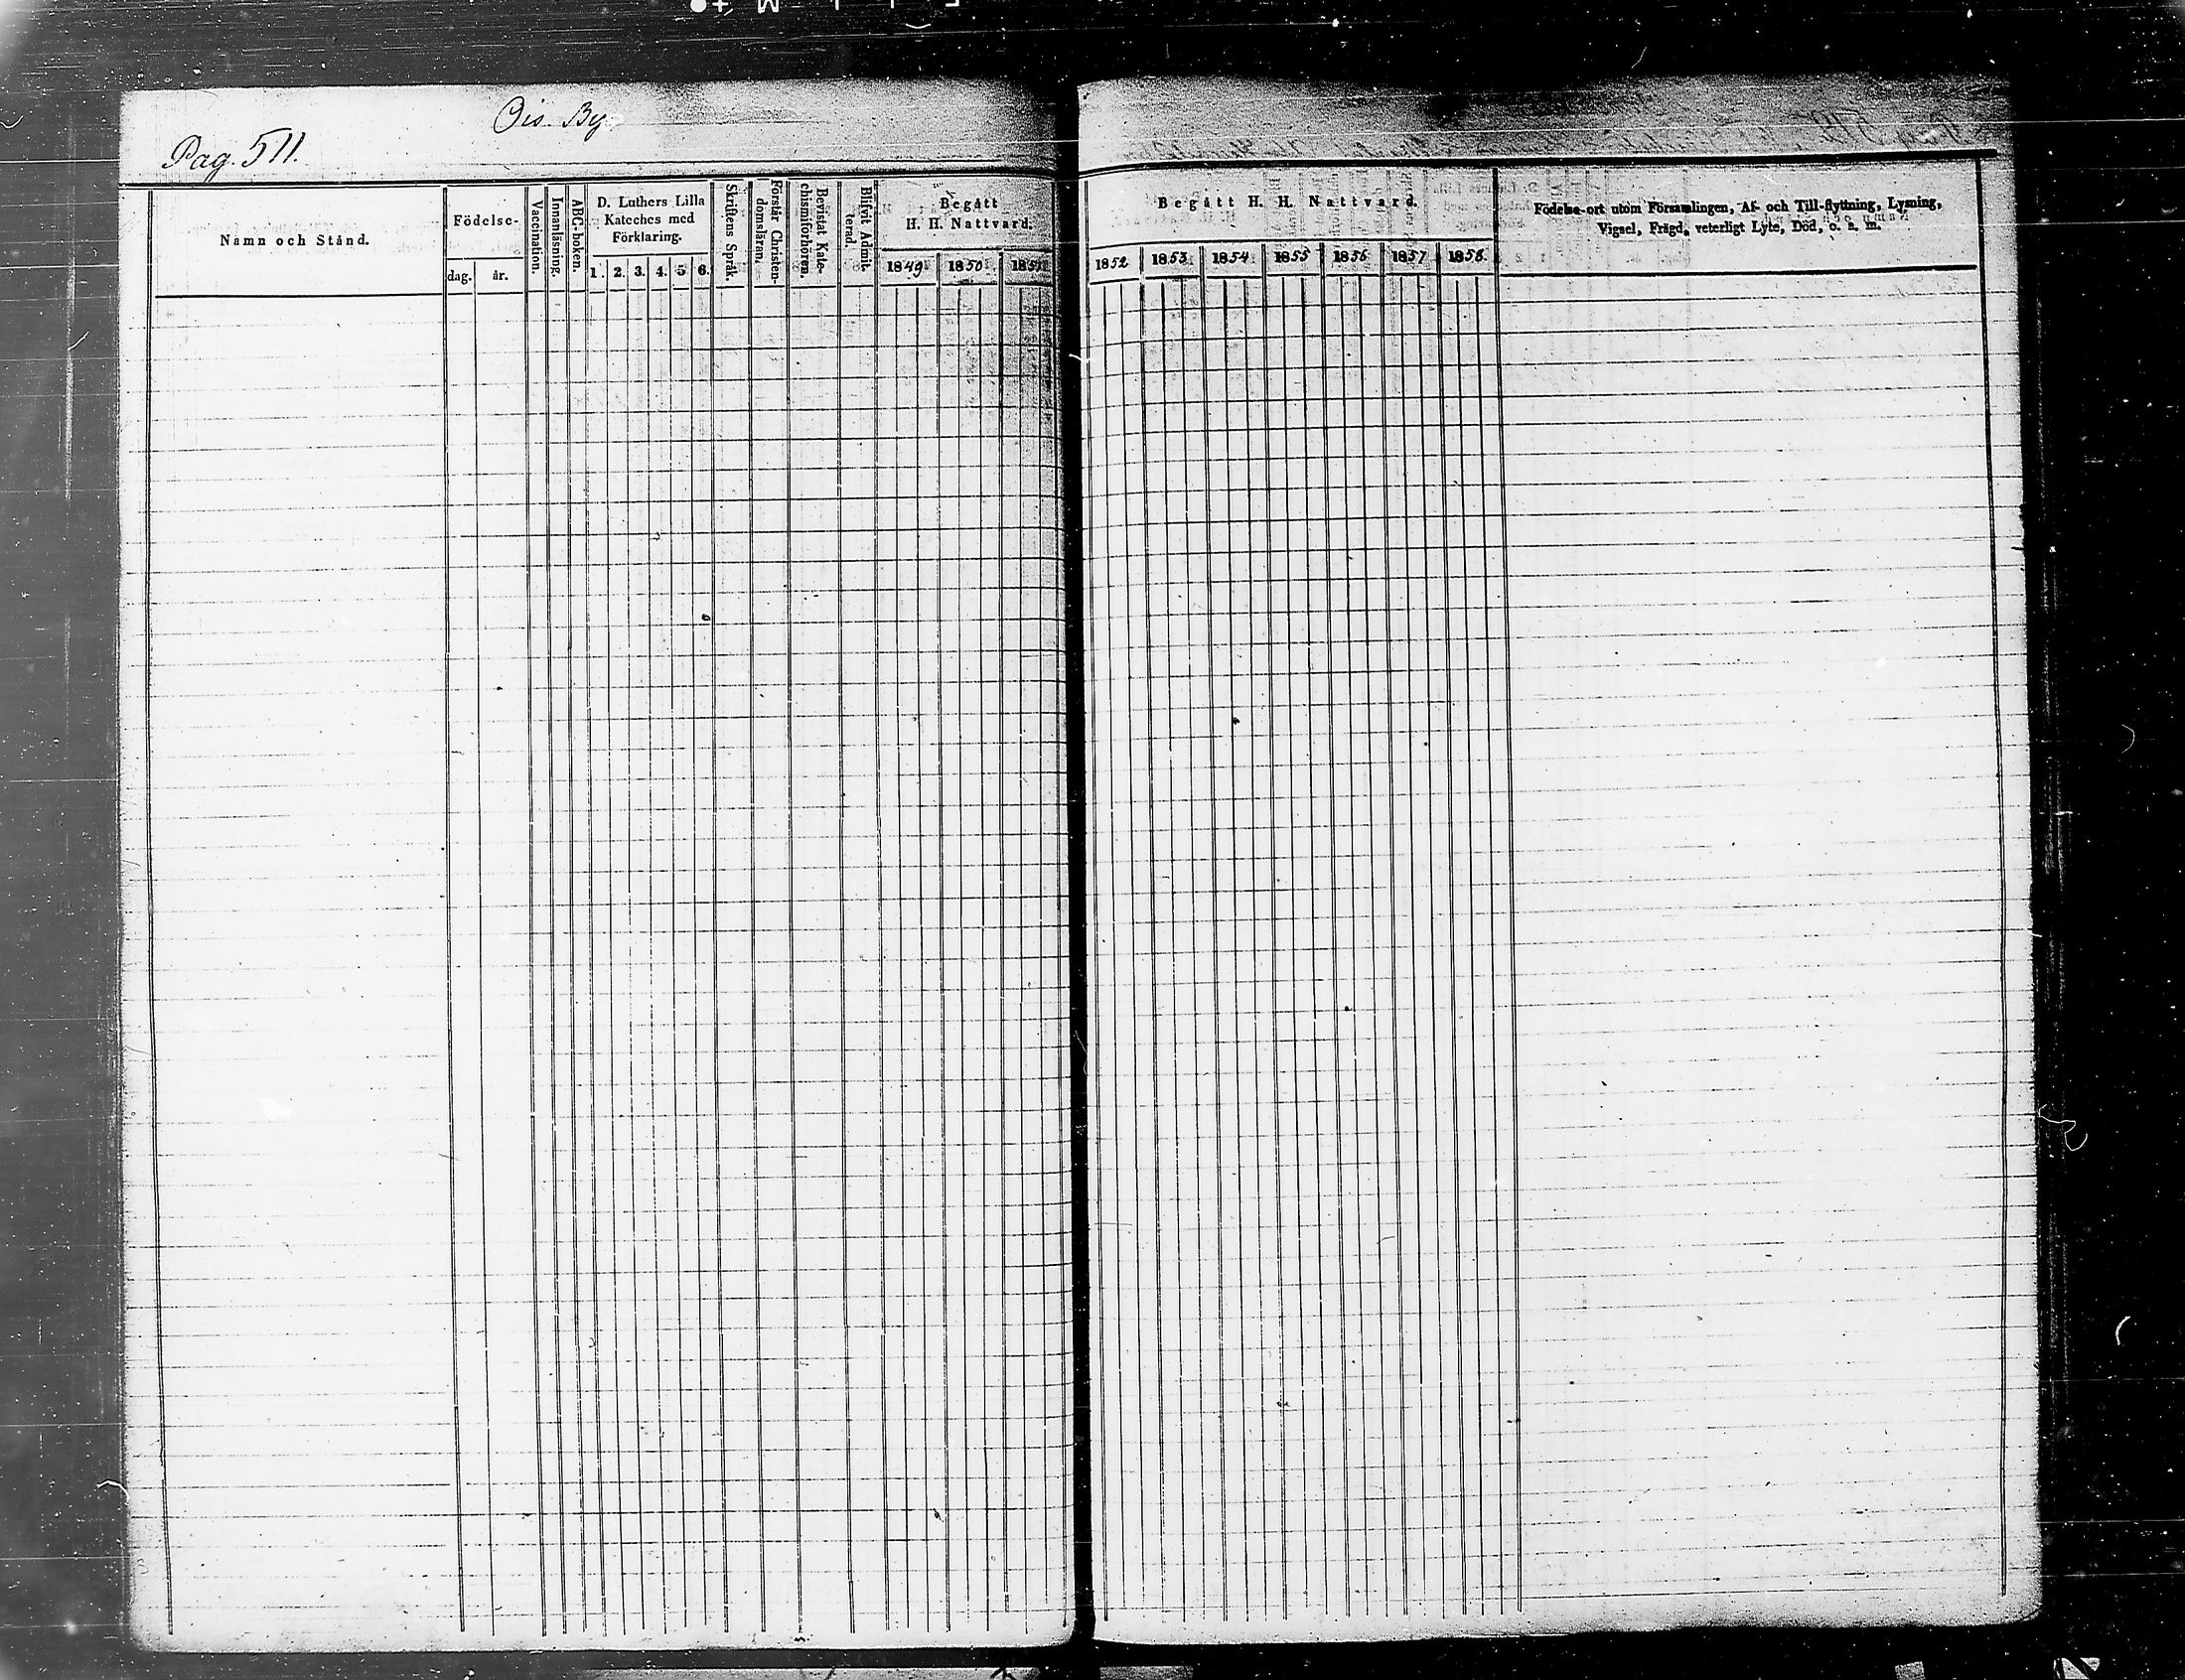 Ois By
Pag. 511.
Namn och Stånd.
Födelse-
dag. år.
Vaccination.
Innanläsning.
ABC-boken.
D. Luthers Lilla
Kateches med
Förklaring.
1. 2. 3. 4. 5 6.
Skriftens Språk.
Förstår Christen-
domsläran.
Bevistat Kate-
chismiförhören.
Blifvit Admit-
terad.
Begått
H. H. Nattvard.
1849 1850 1851
Begått H. H. Nattvard.
1852 1853 1854 1855 1856 1857 1858.
Födelse-ort utom Församlingen, Af- och Till-flyttning, Lysning,
Vigsel, Frägd, veterligt Lyte, Död, o. s. m.